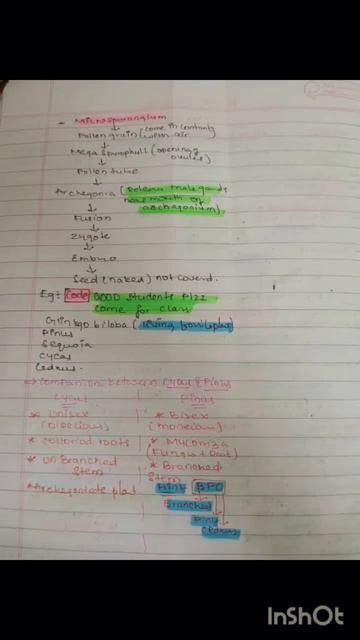 - Microsporangium
Pollen grain (come in contact with air
Megasporophyll (opening of ovules)
Pollen tube
Archegonia (Release male gamets near mouth of archegonium)
Fusion
Zygote
Embryo
Seed (naked) not coverd.
Eg: Code GOOD students Plzz
come for class
Ginkgo biloba (living fossils plant)
Pinus
Sequoia
Cycas
Cedrus
=> Comparison between Cycus & Pinus
Cycus Pinus
* Unisex * Bisex
(Dioecious) (monoecious)
* collorid roots * Mycorriza
(Fungus + Root)
* unBranched * Branched
Stem Stem
* Archegoniate plat Hint BPC
Branched
Pinus
Cedrus
InShOt